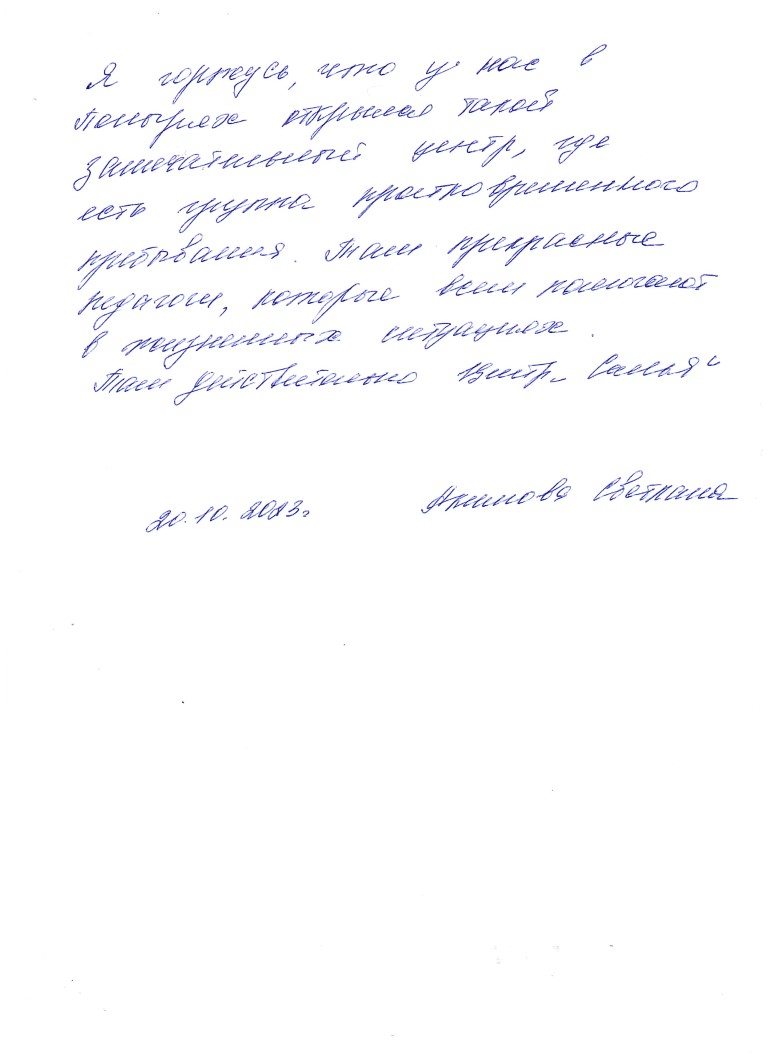 Я горжусь, что у нас в
Понырях открылся такой
замечательный центр, где
есть группа кратковременного
пребывания. Там прекрасные
педагоги, которые всем помогают
в жизненных ситуациях.
Там действительно центр „Семья“
20.10.2023г Акимова Светлана